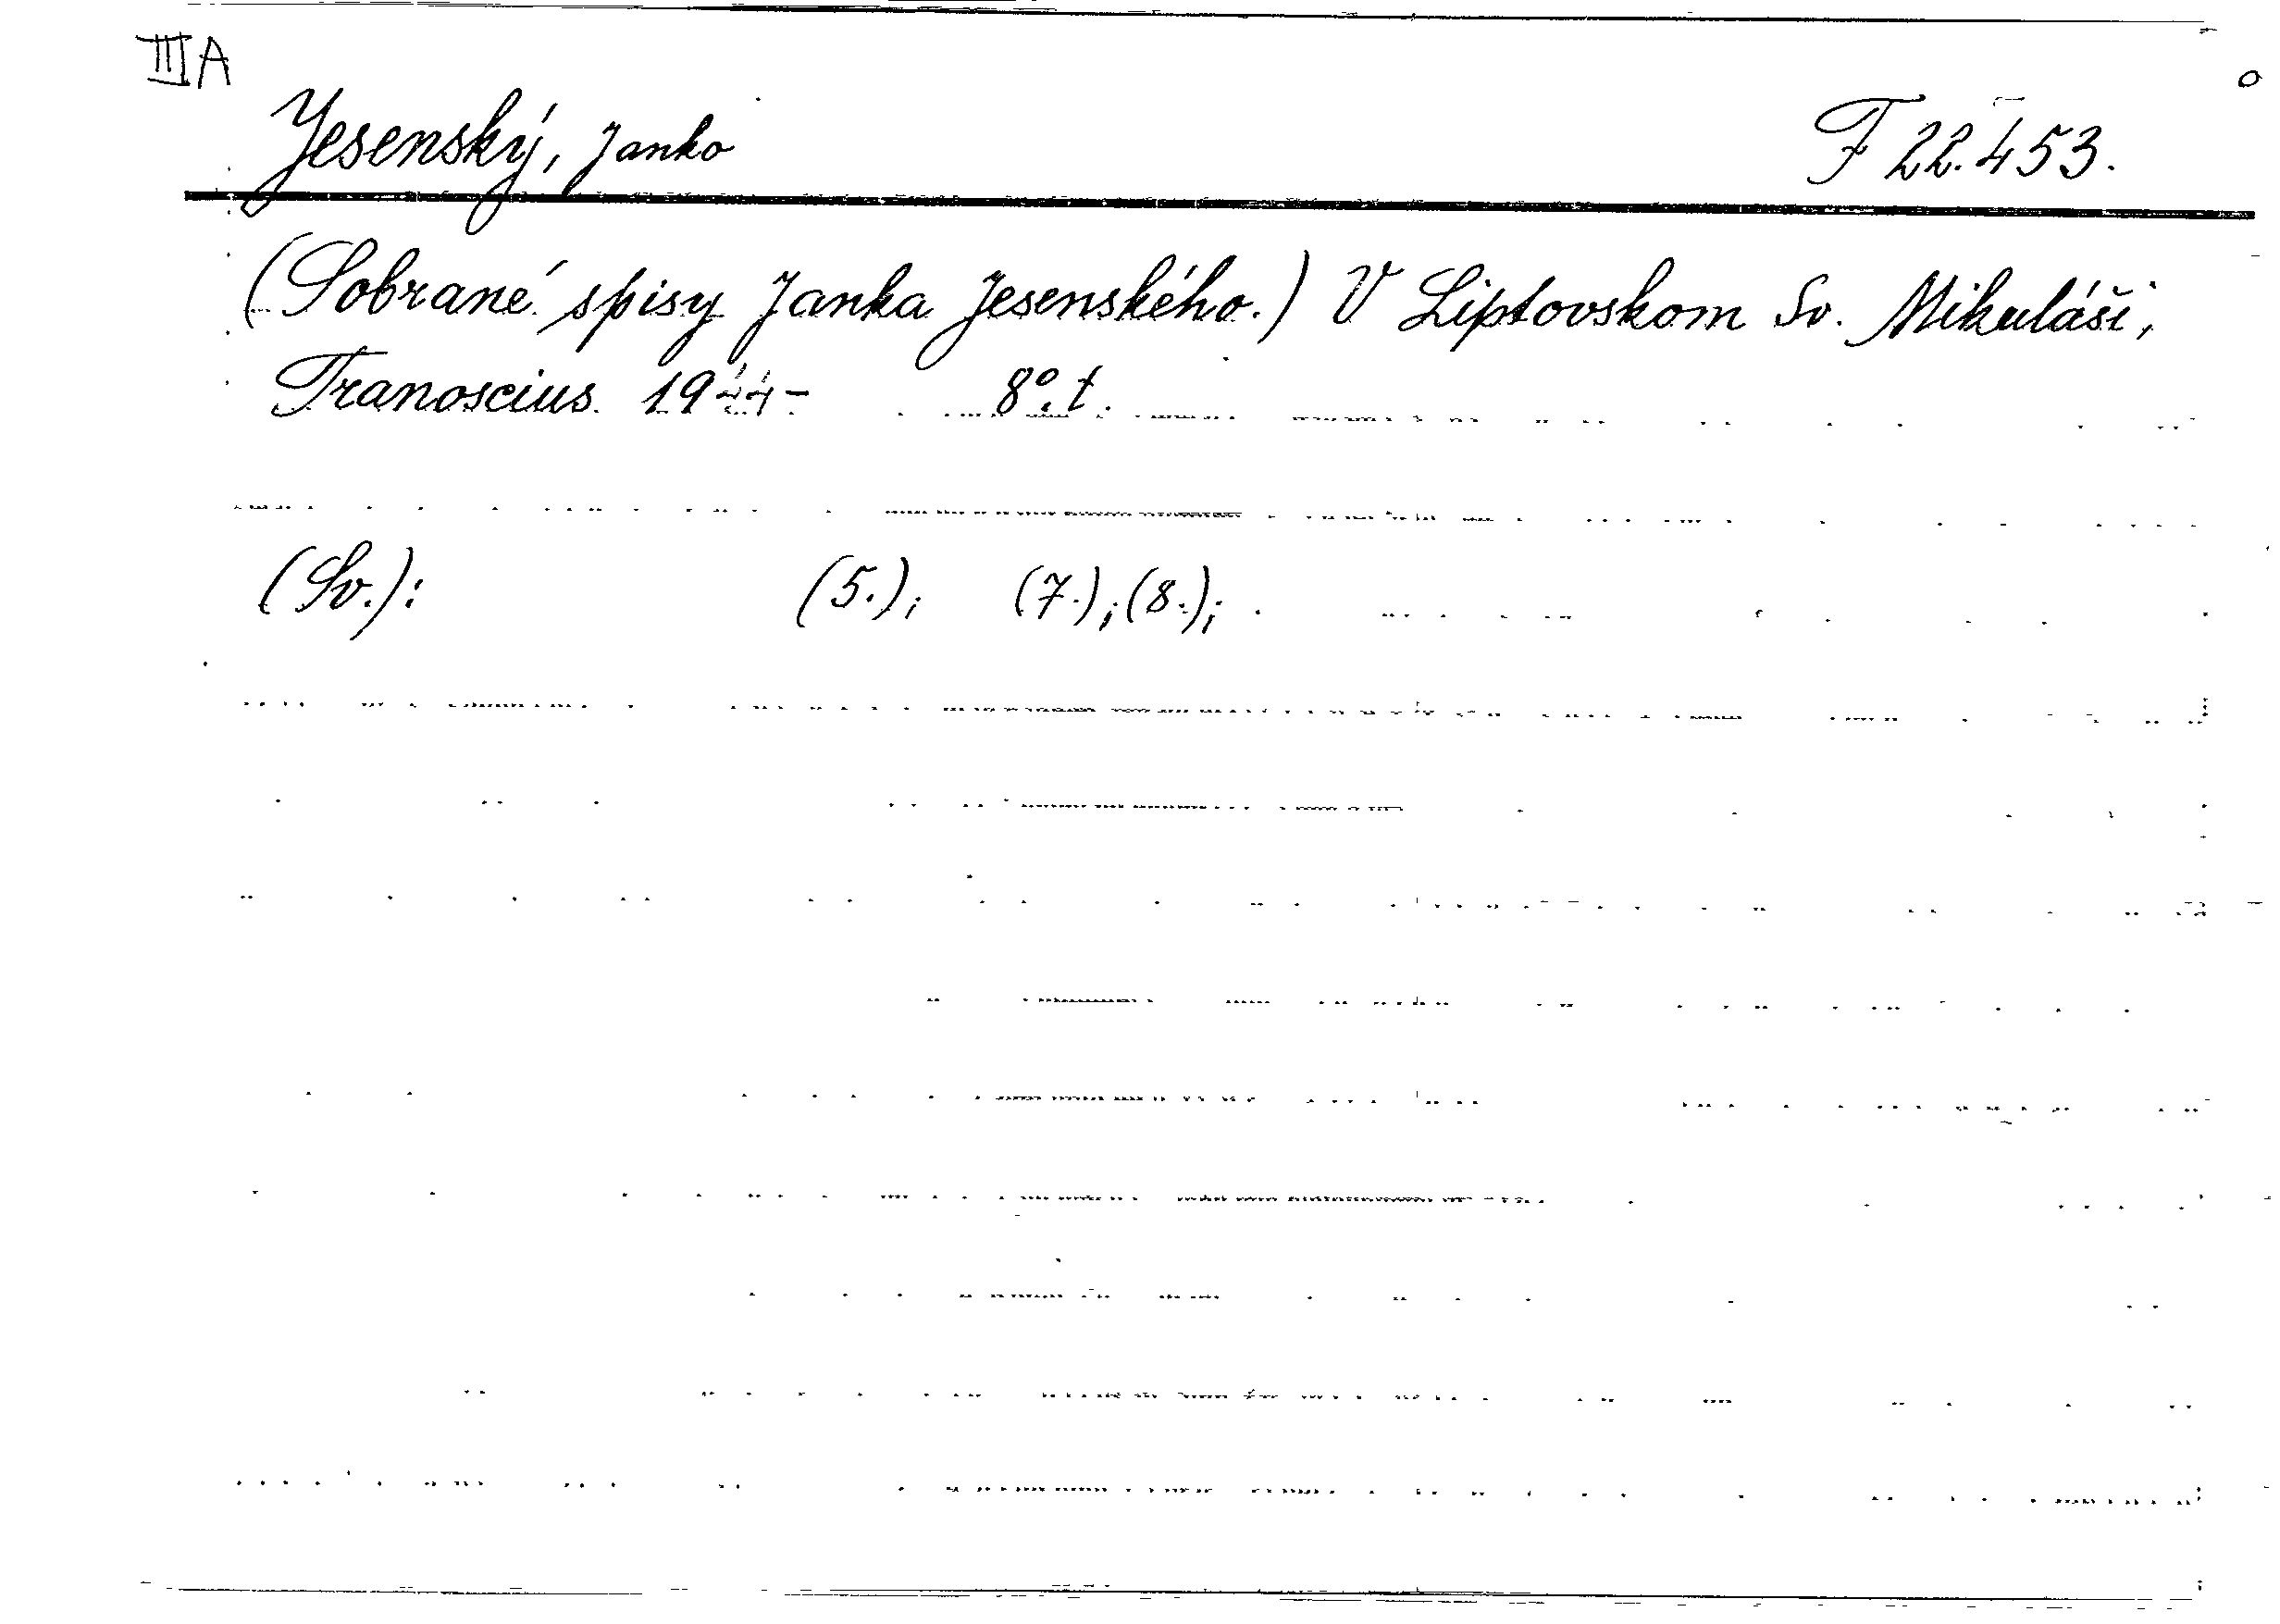 III A
Jesenský, Janko F 22.453.
(Sobrané spisy Janka Jesenského.) V Liptovskom Sv. Mikuláši,
Tranoscius. 1944- 8°. t.
(Sv.): (5.); (7.); (8.);